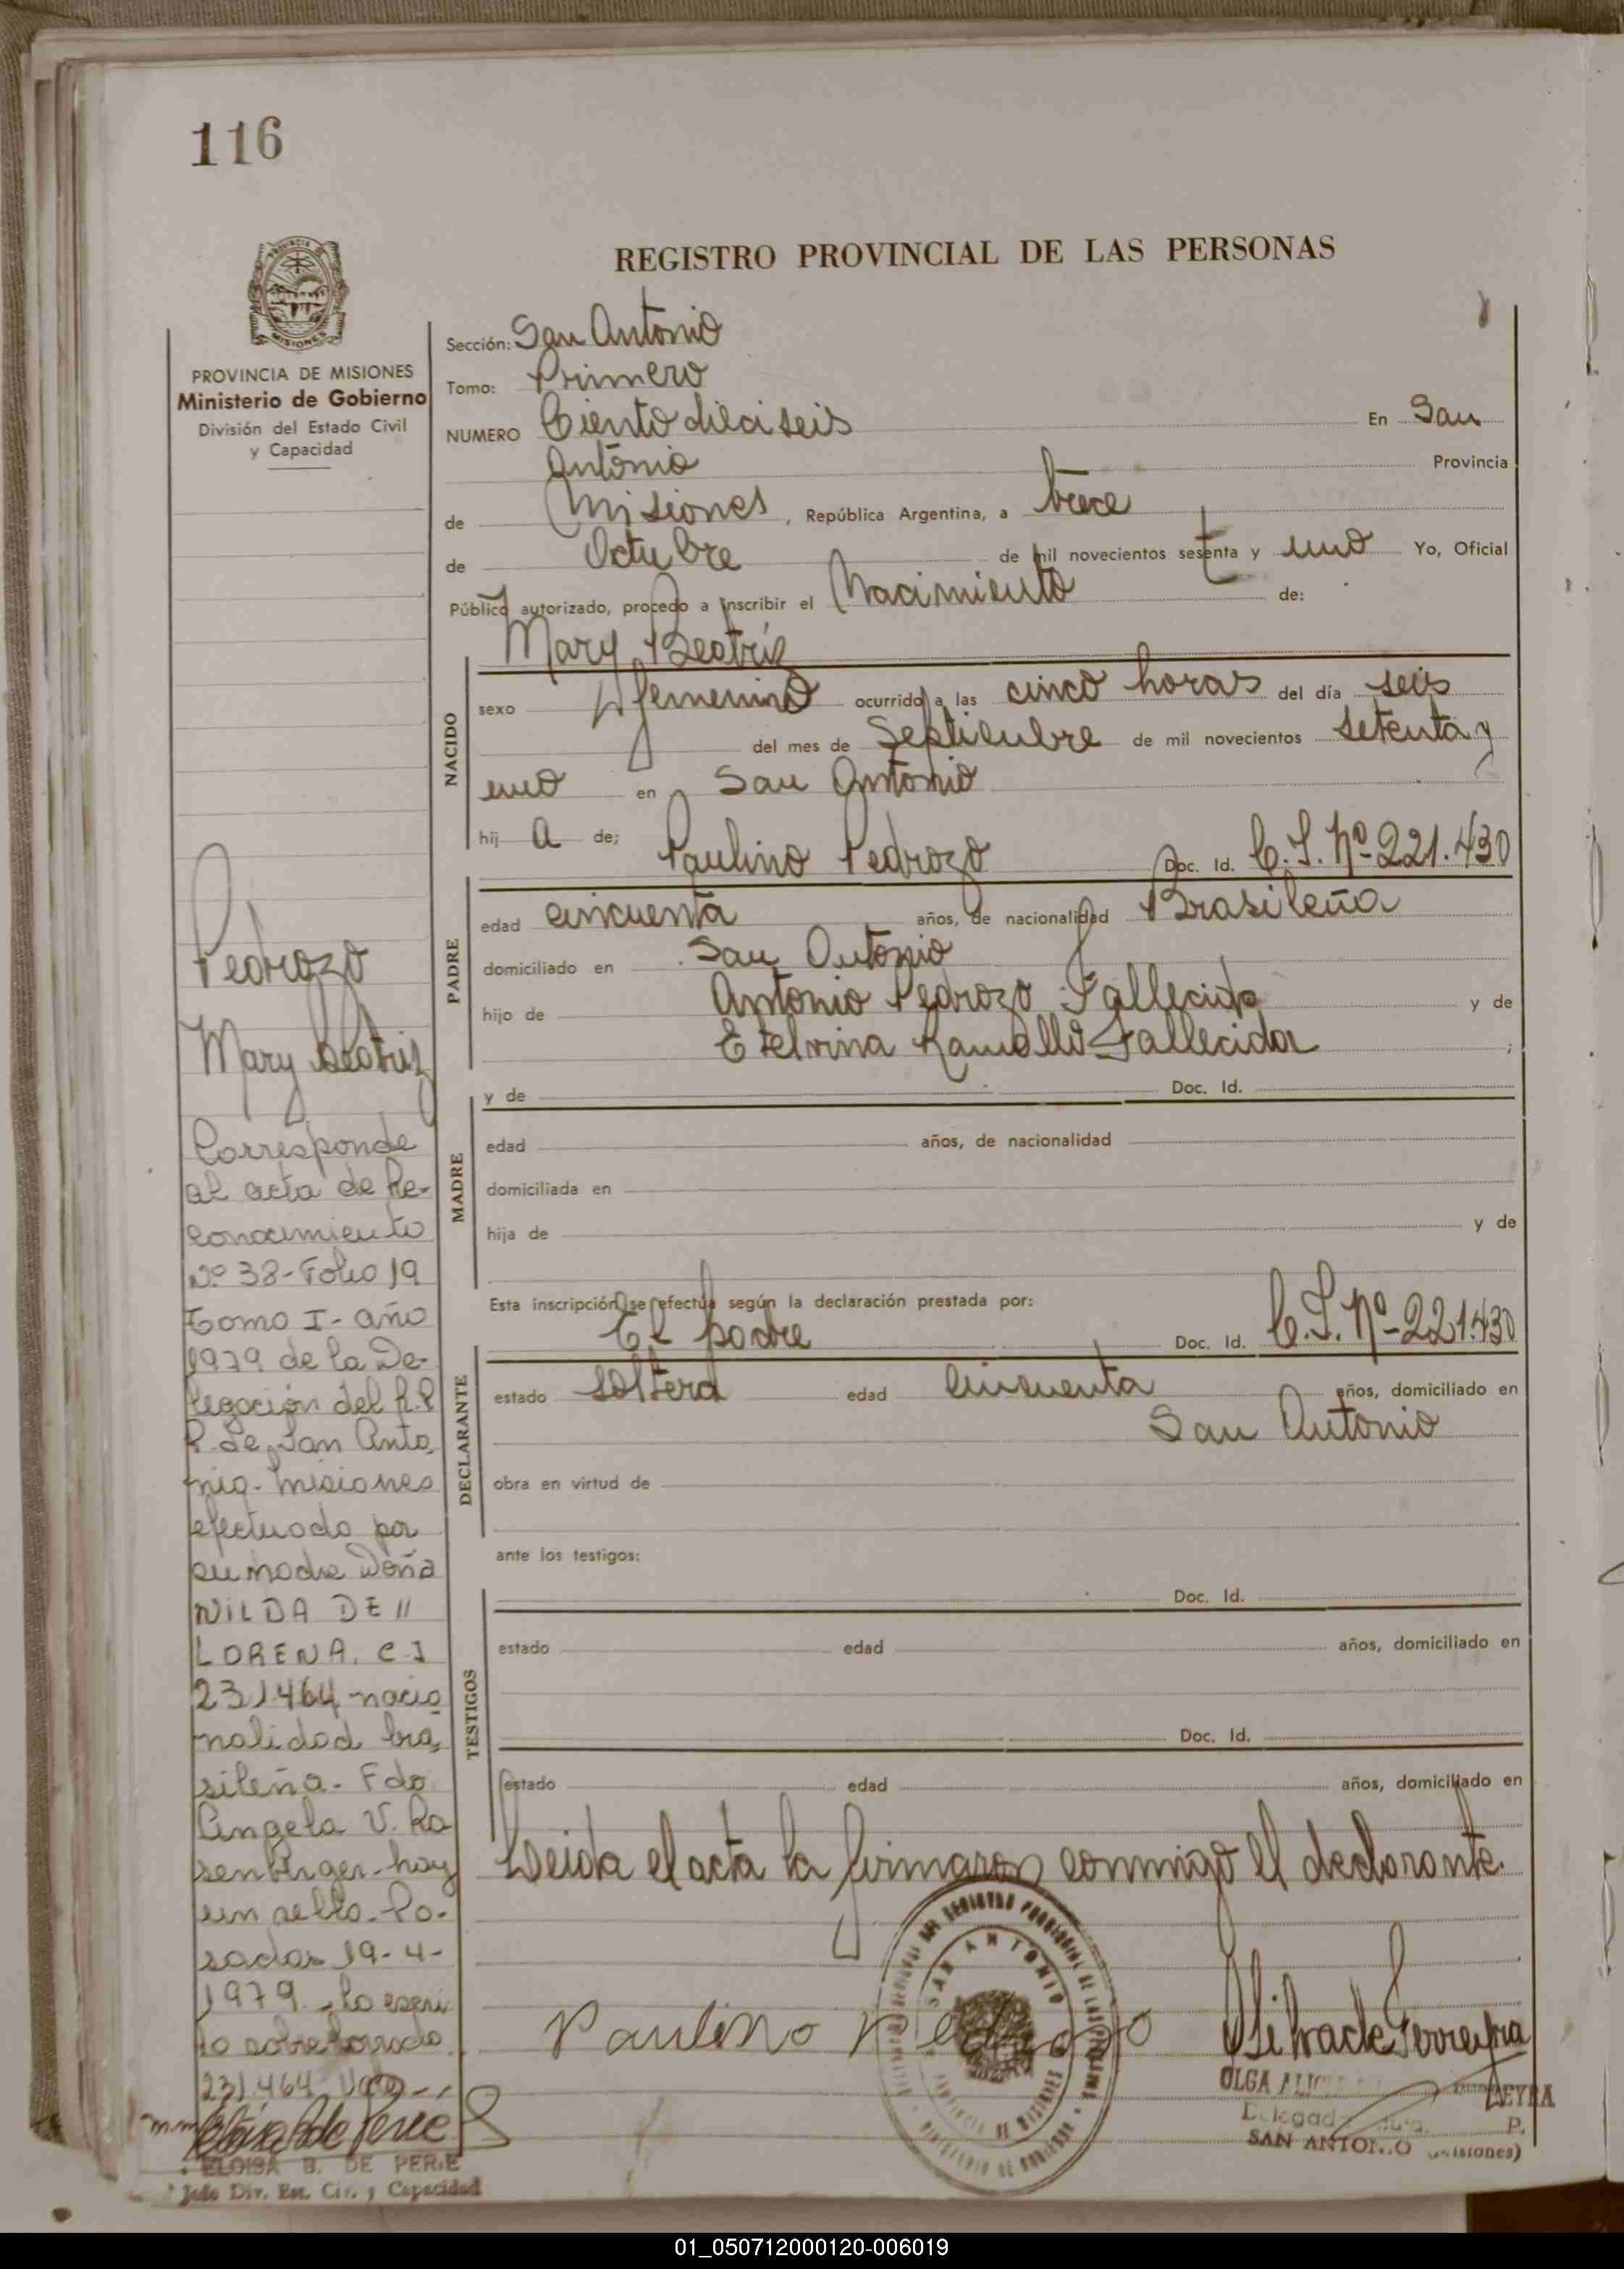 116
REGISTRO PROVINCIAL DE LAS PERSONAS
PROVINCIA DE MISIONES
MISIONES
PROVINCIA DE MISIONES
Ministerio de Gobierno
División del Estado Civil
y Capacidad
Sección: San Antonio
Tomo: Primero
NUMERO Ciento dieciseis En San
Antonio Provincia
de Misiones, República Argentina, a trece
de Octubre de mil novecientos setenta y uno Yo, Oficial
Público autorizado, procedo a inscribir el Nacimiento de:
Mary Beatriz
NACIDO
sexo femenino ocurrido a las cinco horas del día seis
del mes de Septiembre de mil novecientos setenta y
uno en San Antonio
hij a de; Paulino Pedrozo Doc. Id. C.I. Nº 221.430
PADRE
edad cincuenta años, de nacionalidad Brasileña
domiciliado en San Antonio
hijo de Antonio Pedrozo Fallecido y de
Etelvina Fallecida ;
MADRE
y de Doc. Id.
edad años, de nacionalidad
domiciliada en
hija de y de
Esta inscripción se efectúa según la declaración prestada por:
El padre Doc. Id. C.I. Nº 221.430
DECLARANTE
estado soltero edad cincuenta años, domiciliado en
San Antonio
obra en virtud de
ante los testigos:
TESTIGOS
Doc. Id.
estado edad años, domiciliado en
Doc. Id.
estado edad años, domiciliado en
Leida el acta la firmaron conmigo el declarante.
Paulino Pedrozo
SAN ANTONIO
OLGA
SAN ANTONIO (Misiones)
Pedrozo
Mary Beatriz
Corresponde
al acta de Re-
conocimiento
Nº 38-Folio 19
Tomo I-año
1979 de la De-
legación del R.P
P. de San Anto-
nio-Misiones
efectuado por
su madre Doña
NILDA DE //
LORENA. C.I
231464-nacio
nalidad bra-
sileña-Fdo
Angela V. Ro
senberger-hay
un sello-Po-
sadas 19-4-
1979.-lo escri
to sobreborrado
231.464 Vale-
ELOISA B. DE PERIE
Jefe Div. Est. Civ. y Capacidad
01_050712000120-006019